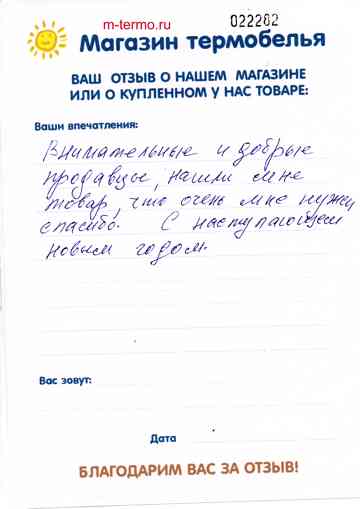 m-termo.ru
022282
Магазин термобелья
ВАШ ОТЗЫВ О НАШЕМ МАГАЗИНЕ
ИЛИ О КУПЛЕННОМ У НАС ТОВАРЕ:
Ваши впечатления:
Внимательные и добрые
продавцы, нашли мне
товар, что очень мне нужен
спасибо. С наступающем
новым годом.
Вас зовут:
Дата
БЛАГОДАРИМ ВАС ЗА ОТЗЫВ!